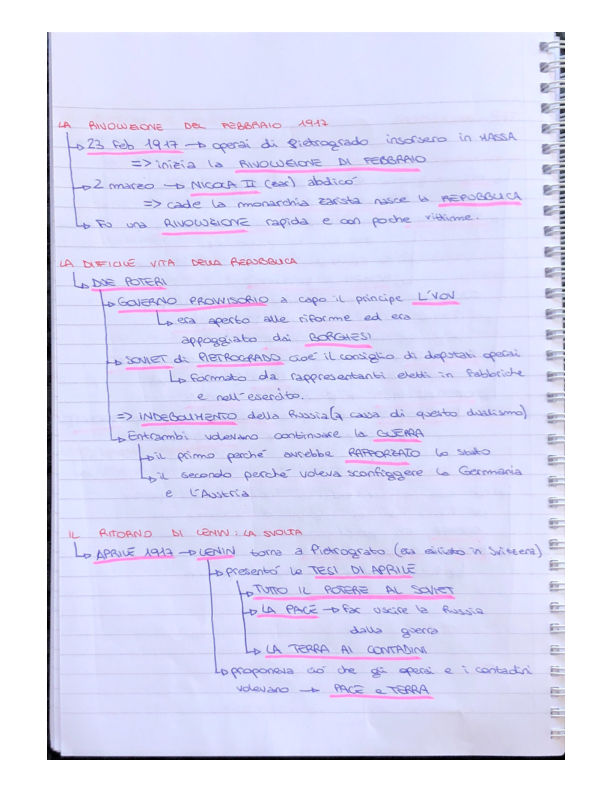 LA RIVOLUZIONE DEL FEBBRAIO 1917
23 Feb 1917 → operai di Pietrogrado insorsero in MASSA
=> inizia la RIVOLUZIONE DI FEBBRAIO
2 marzo → NICOLA II (zar) abdicò
=> cade la monarchia zarista nasce la REPUBBLICA
Fu una RIVOLUZIONE rapida e con poche vittime.
LA DIFFICILE VITA DELLA REPUBBLICA
DUE POTERI
GOVERNO PROVVISORIO a capo il principe L'VOV
era aperto alle riforme ed era
appoggiato dai BORGHESI
SOVIET di PIETROGRADO cioè il consiglio di deputati operai
formato da rappresentanti eletti in fabbriche
e nell'esercito.
=> INDEBOLIMENTO della Russia (a causa di questo dualismo)
Entrambi volevano continuare la GUERRA
il primo perché avrebbe RAFFORZATO lo stato
il secondo perché voleva sconfiggere la Germania
e l'Austria
IL RITORNO DI LENIN: LA SVOLTA
APRILE 1917 → LENIN torna a Pietrograto (era esiliato in Svizzera)
presentò le TESI DI APRILE
TUTTO IL POTERE AL SOVIET
LA PACE → far uscire la Russia
dalla guerra
LA TERRA AI CONTADINI
proponeva ciò che gli operai e i contadini
volevano → PACE e TERRA